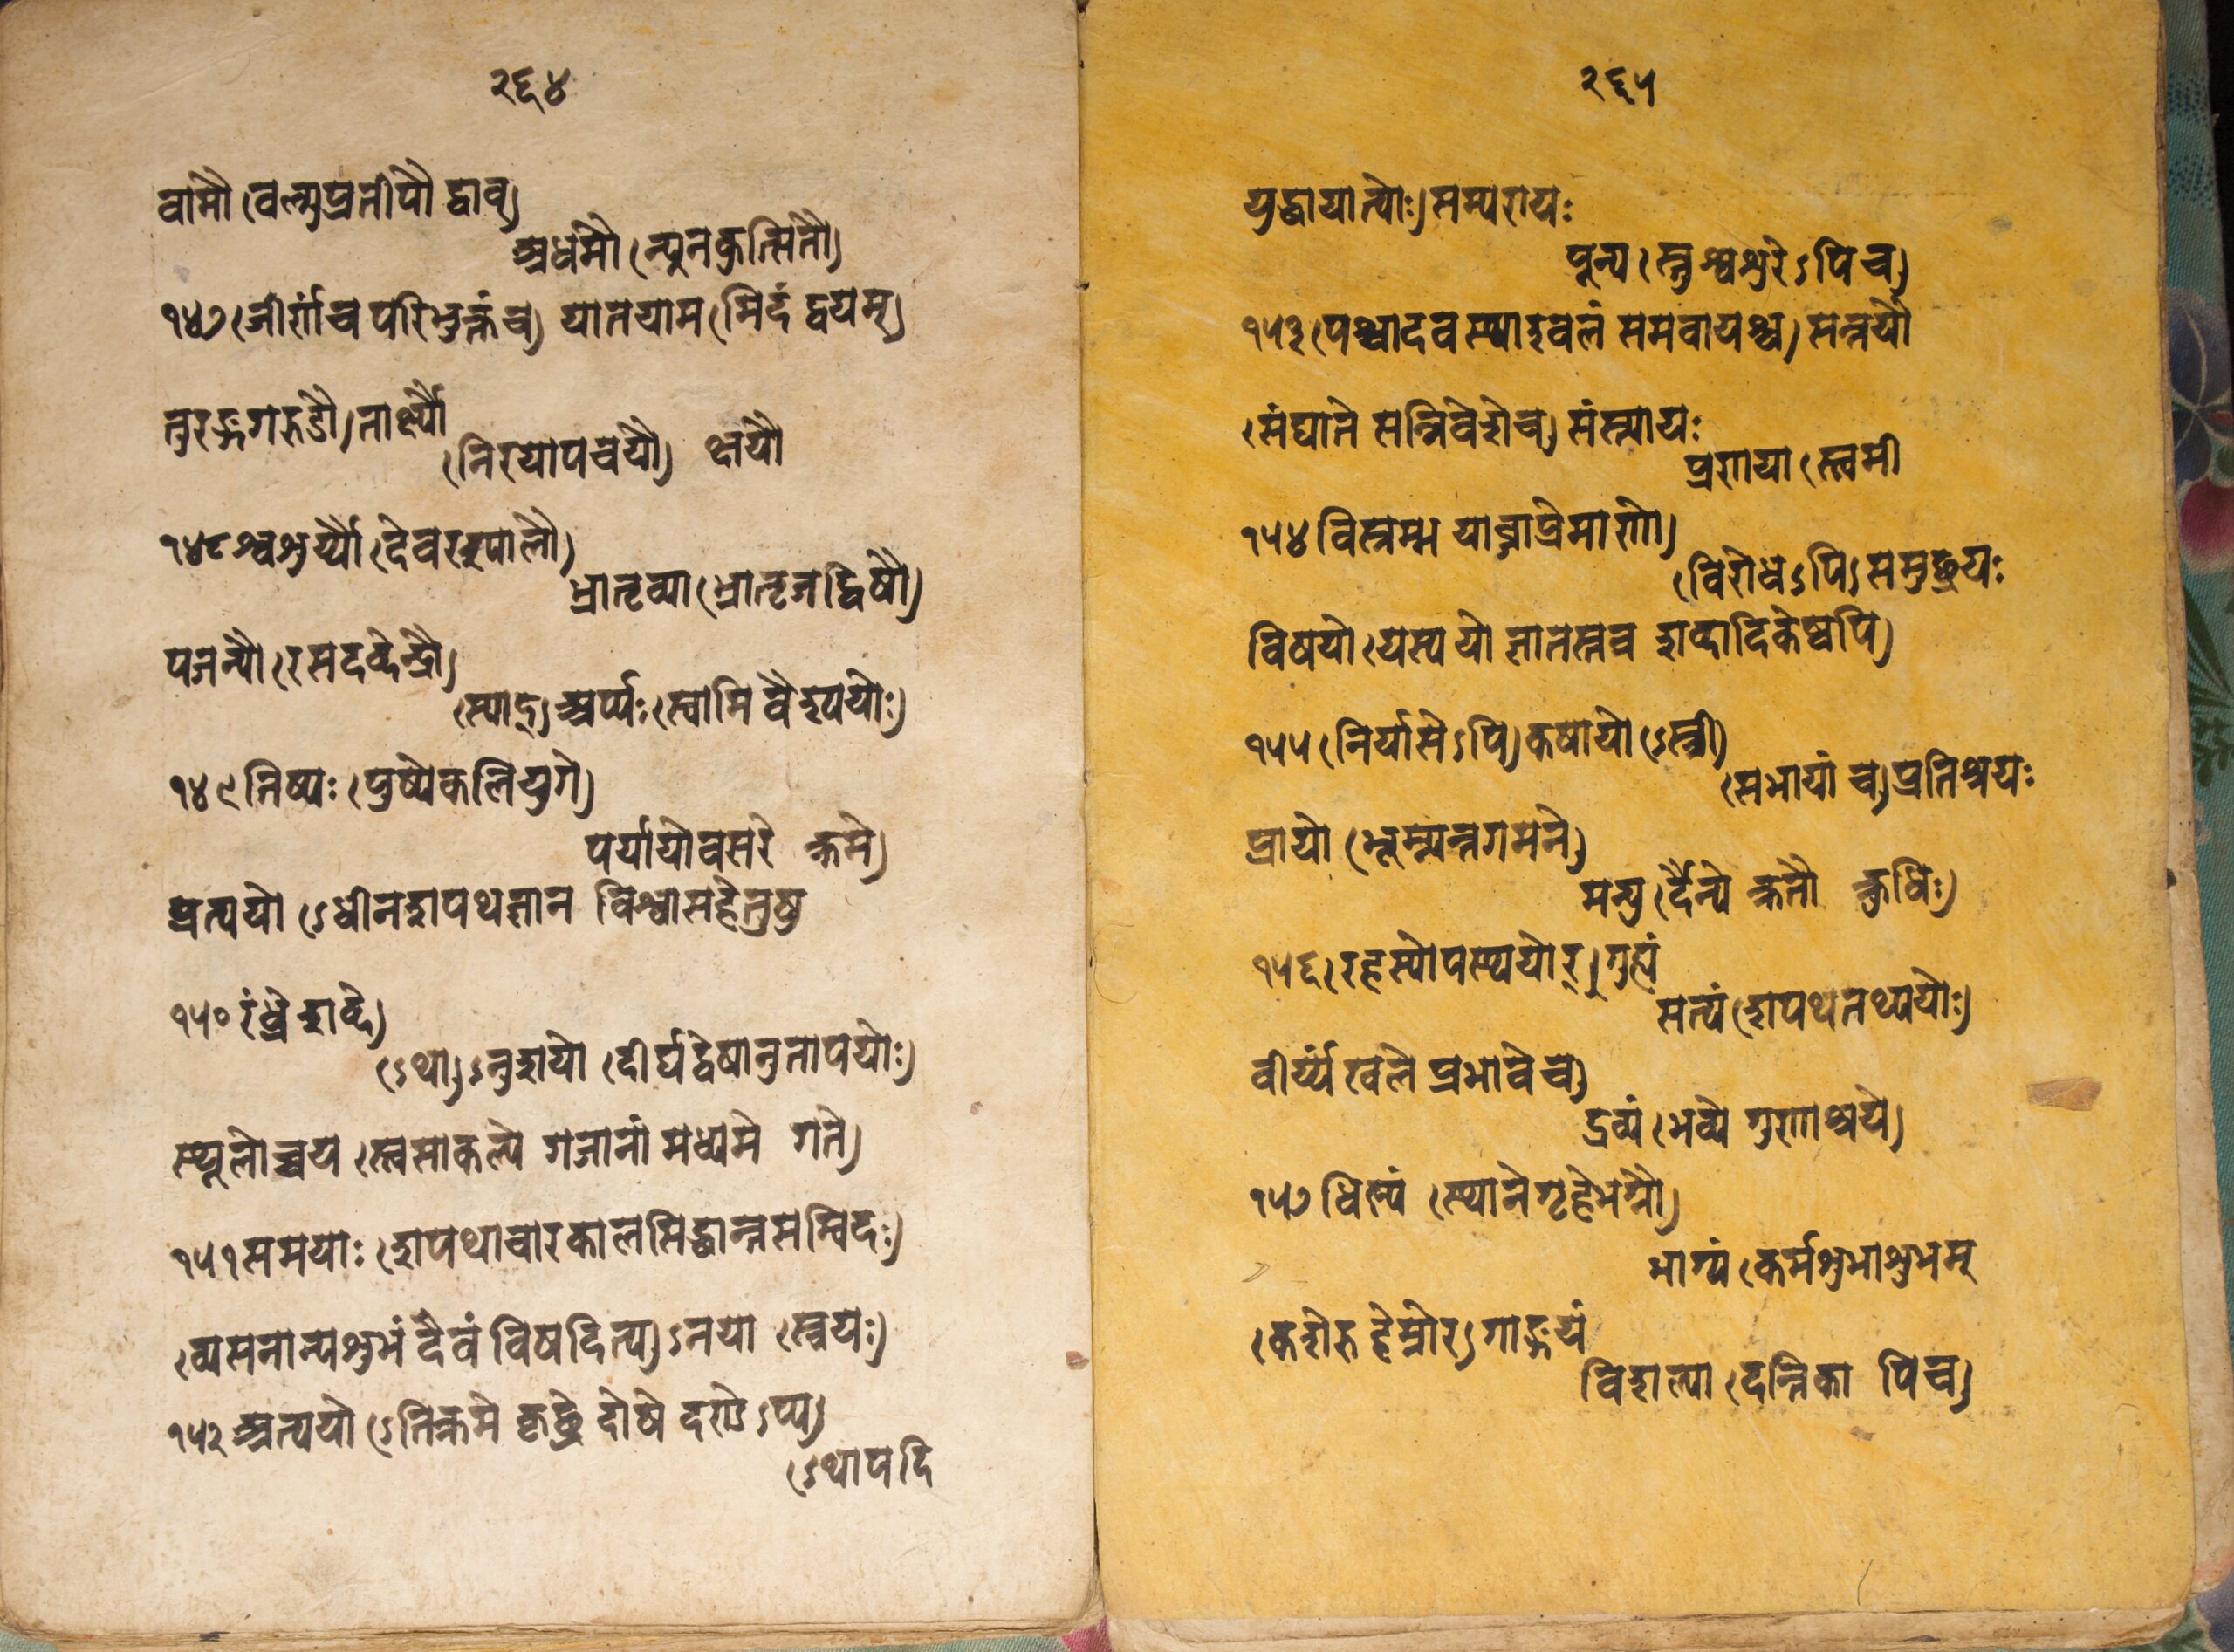 २६४
वामौ (वल्गुप्रतीपौ द्वाव्)
अधमौ (न्यूनकुत्सितौ)
१४७ (जीर्णं च परिभुक्तं च) यातयाम (मिदं द्वयम्)
तुरङ्गगरुडौ) तार्क्ष्यौ
(निलयोपचयौ) क्षयौ
१४८ श्वशुर्य्यौ (देवरश्यालौ)
भ्रातृव्या (भ्रातृजद्विषौ)
पर्जन्यौ (रसदब्देन्द्रौ)
(स्याद्) अर्य्यः (स्वामिवैश्ययोः)
१४९ तिष्यः (पुष्ये कलियुगे)
पर्यायोवसरे क्रमे)
प्रत्ययो (ऽधीनशपथज्ञान विश्वासहेतुषु
१५० रंध्रे शब्दे)
(ऽथा)ऽनुशयो (दीर्घद्वेषानुतापयोः)
स्थूलोच्चय (स्त्वसाकल्ये गजानां मध्यमे गते)
१५१ समयाः (शपथाचारकालसिद्धान्तसम्विदः)
(व्यसनान्यशुभं दैवं विपदित्य)ऽनया (स्त्रयः)
१५२ अत्ययो (ऽतिक्रमे कृच्छ्रे दोषे दण्डेऽप्य)
(ऽथापदि
२६५
युद्धायात्योः) सम्परायः
पूज्य (स्तु श्वशुरेऽपि च)
१५३ (पश्चादवस्थाइबलं समवायश्च) सन्नयौ
(संघाते सन्निवेशे च) संस्त्यायः
प्रणया (स्त्वमी
१५४ विस्रम्भ याञ्चाप्रेमाणो)
(विरोधेऽपि) समुच्छ्रयः
विषयो (यस्य यो ज्ञातस्तत्र शब्दादिकेष्वपि)
१५५ (निर्यासेऽपि) कषायो (ऽस्त्री)
(सभायां च) प्रतिश्रयः
प्रायो (भूम्न्यन्तगमने)
मन्यु (र्दैन्ये क्रतौ क्रुधि)
१५६ (रहस्योपस्थयोर्) गुह्यं
सत्यं (शपथतथ्ययोः)
वीर्य्यं (बले प्रभावे च)
द्रव्यं (भव्ये गुणाश्रये)
१५७ धिष्ण्यं (स्थाने गृहे भेग्नौ)
भाग्यं (कर्मशुभाशुभम्
(कशेरुहेम्नोर्) गाङ्गेयं
विशल्या (दन्तिकापि च)